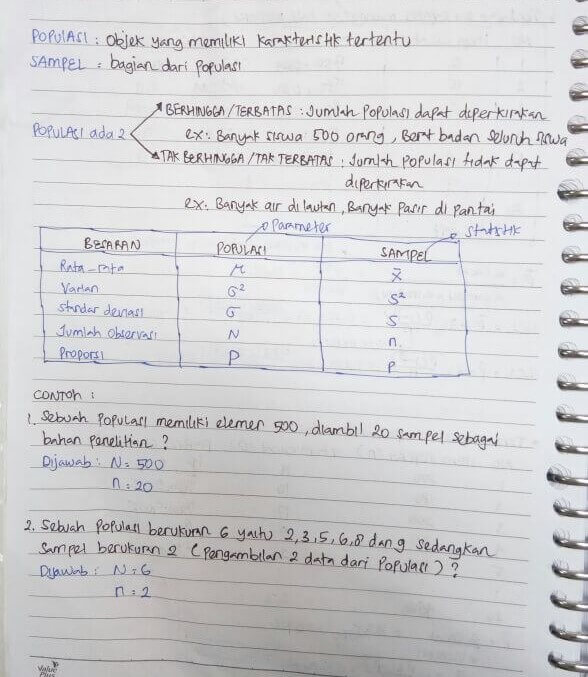 POPULASI : Objek yang memiliki karakteristik tertentu
SAMPEL : bagian dari populasi
POPULASI ada 2
BERHINGGA / TERBATAS : Jumlah populasi dapat diperkirakan
ex : Banyak siswa 500 orang, Berat badan seluruh siswa
TAK BERHINGGA / TAK TERBATAS : Jumlah populasi tidak dapat
diperkirakan
ex : Banyak air di lautan, Banyak Pasir di Pantai
Parameter Statistik
BESARAN POPULASI SAMPEL
Rata-rata μ x̄
Varian σ² s²
Standar deviasi σ s
Jumlah Observasi N n
Proporsi P p
CONTOH :
1. Sebuah Populasi memiliki elemen 500, diambil 20 sampel sebagai
bahan penelitian ?
Dijawab : N = 500
n = 20
2. Sebuah Populasi berukuran 6 yaitu 2,3,5,6,8 dan 9 sedangkan
Sampel berukuran 2 (Pengambilan 2 data dari Populasi) ?
Dijawab : N = 6
n = 2
Value
Plus